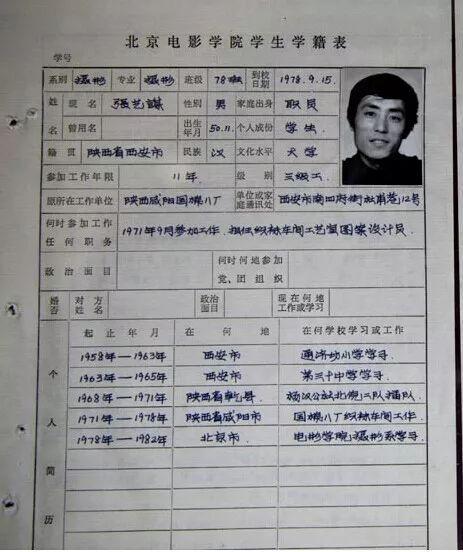 北京电影学院学生学籍表
学号
系别 摄影 专业 摄影 班级 78班 到校日期 1978.9.15.
姓名 现名 张艺謀 性别 男 家庭出身 职员
曾用名 出生年月 50.11. 个人成份 学生
籍贯 陕西省西安市 民族 汉 文化水平 大学
参加工作年限 11年 级别 三级工
原所在工作单位 陕西咸阳国棉八厂 单位或家庭通讯处 西安市南四府街 12号
何时参加工作任何职务 1971年9月参加工作.担任织袜车间工艺室图案设计员.
政治面目 何时何地参加党、团组织
婚否 对方姓名 政治面目 现在何地工作或学习
个人简历
起止年月 在何地 在何学校学习或工作
1958年—1963年 西安市 通济坊小学学习.
1963年—1965年 西安市 第三十中学学习.
1968年—1971年 陕西省乾县. 杨汉公社北倪二队插队.
1971年—1978年 陕西省咸阳市 国棉八厂织袜车间工作.
1978年—1982年 北京市. 电影学院摄影系学习.